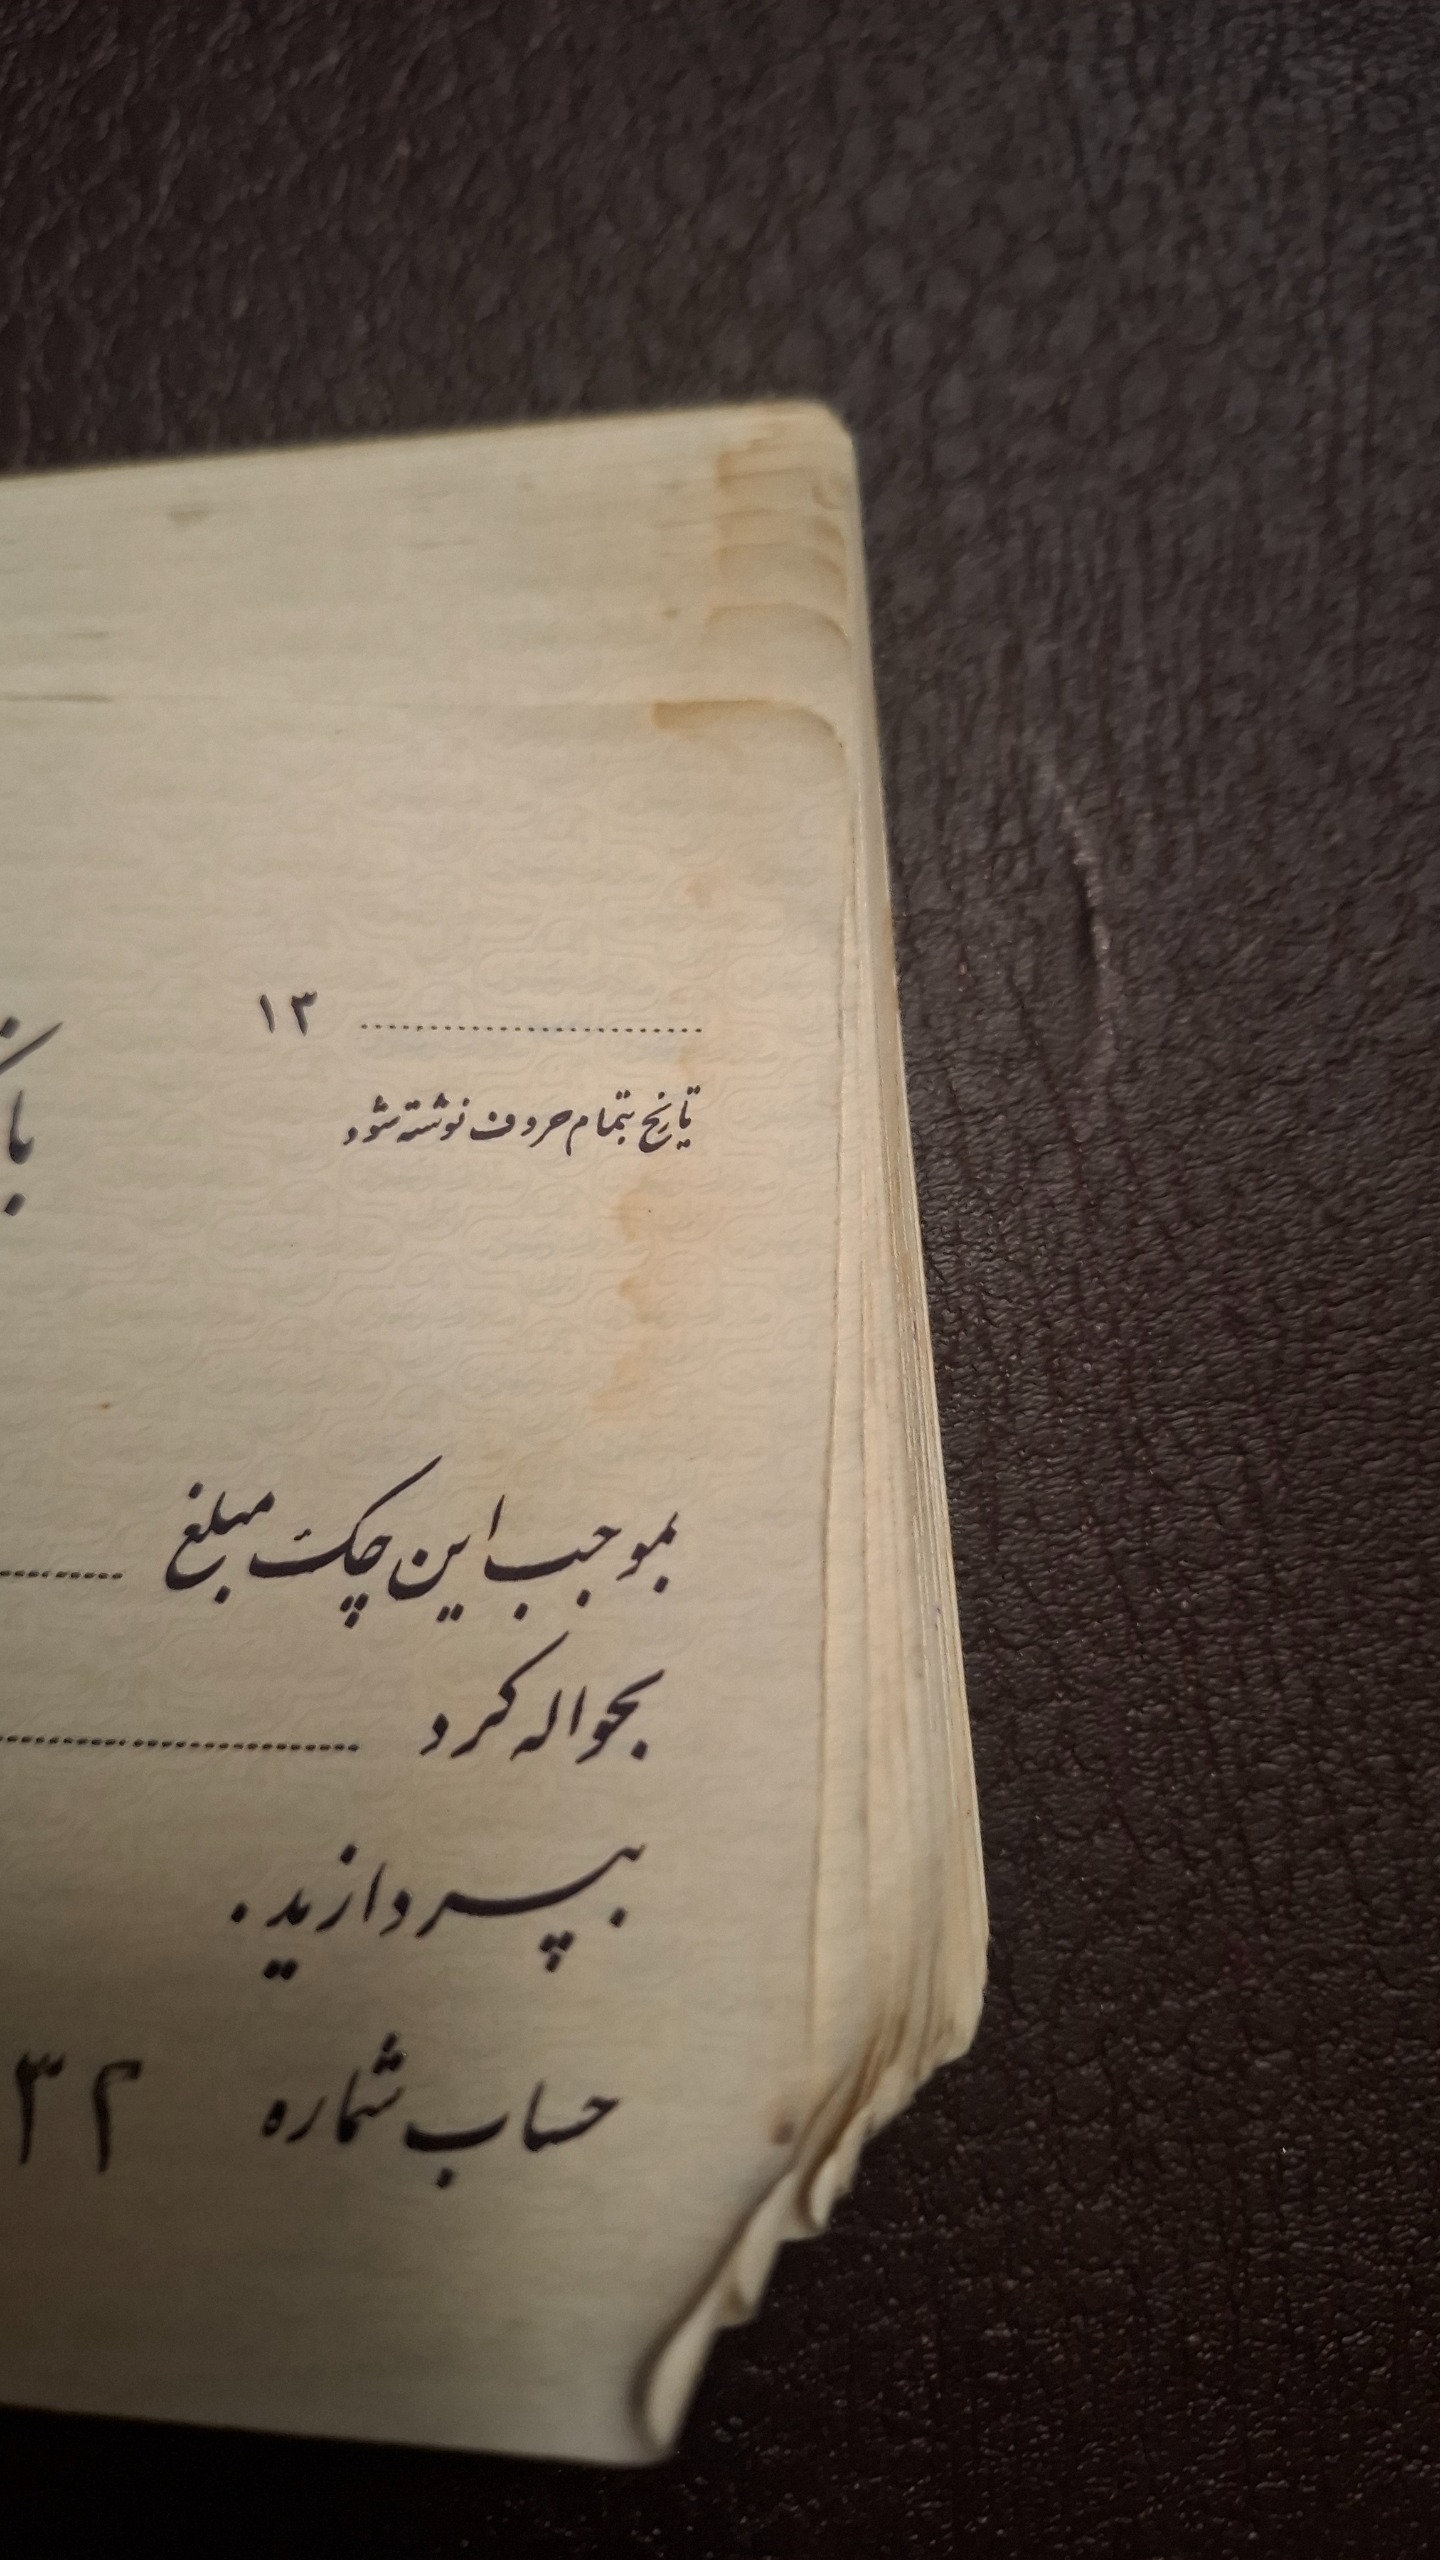 ۱۳
تاریخ بتمام حروف نوشته شود
بموجب این چک مبلغ
بحواله کرد
بپردازید.
حساب شماره ۲۳